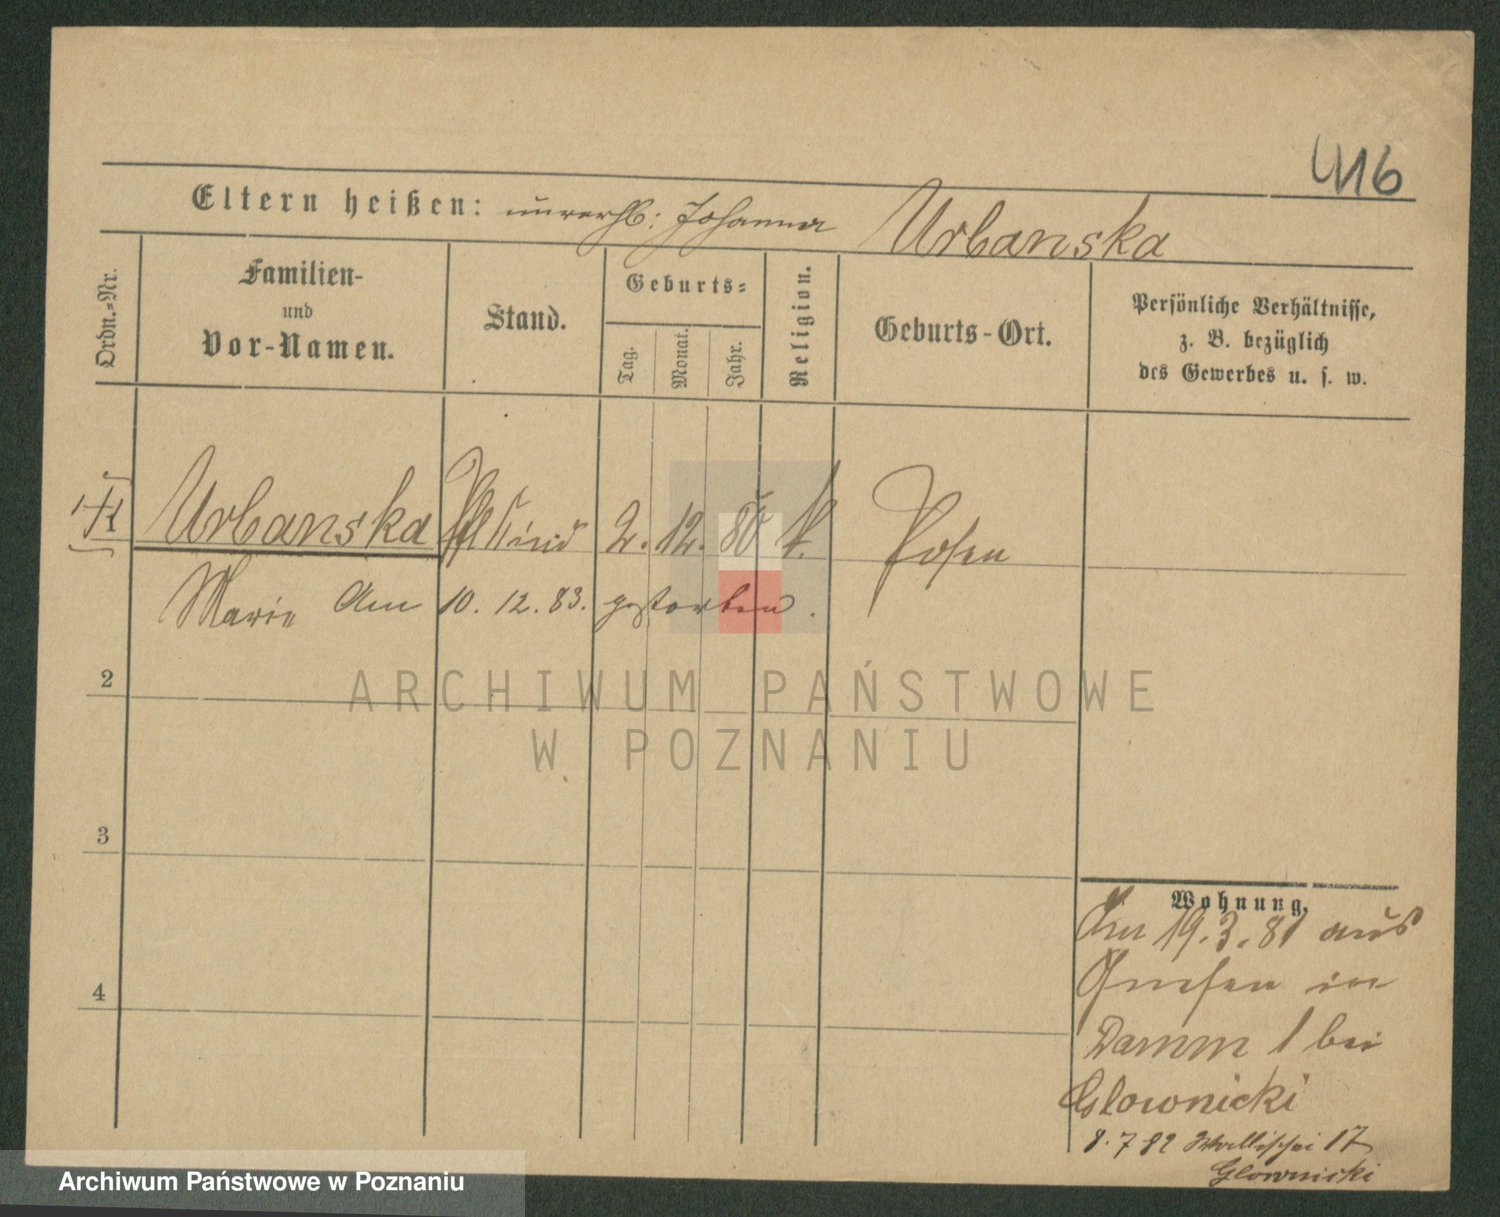 416
Eltern heißen: unverhl: Johanna Urbanska
Ordn.-Nr.
Familien-
und
Vor-Namen.
Stand.
Geburts-
Tag.
Monat.
Jahr.
Religion.
Geburts-Ort.
Persönliche Verhältnisse,
z. B. bezüglich
des Gewerbes u. s. w.
1 Urbanska Pfl Kind 2. 12. 80 k. Posen
Marie Am 10. 12. 83. gestorben.
2
3
4
Wohnung.
Am 19.3.81 aus
Gnesen in
Damm 1 bei
Glownicki
8.7 82 Wallischei 17
Glownicki
ARCHIWUM PAŃSTWOWE
W POZNANIU
Archiwum Państwowe w Poznaniu